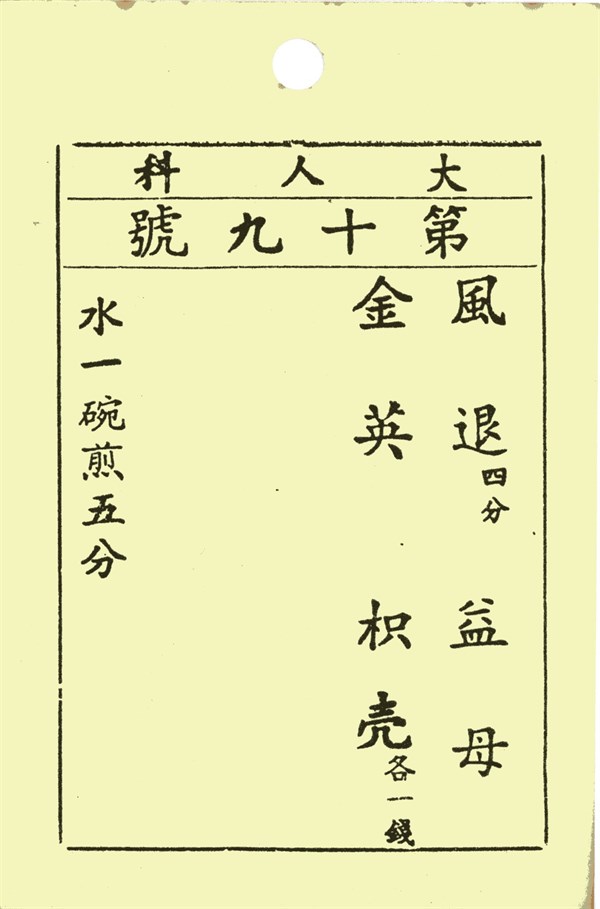 大人科
第十九號
風退四分 益母
金英 枳壳各一錢
水一碗煎五分